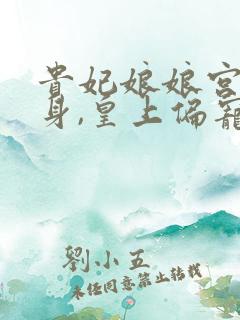 貴妃娘娘宮
身,皇上偏寵
劉小五
未经同意禁止转载